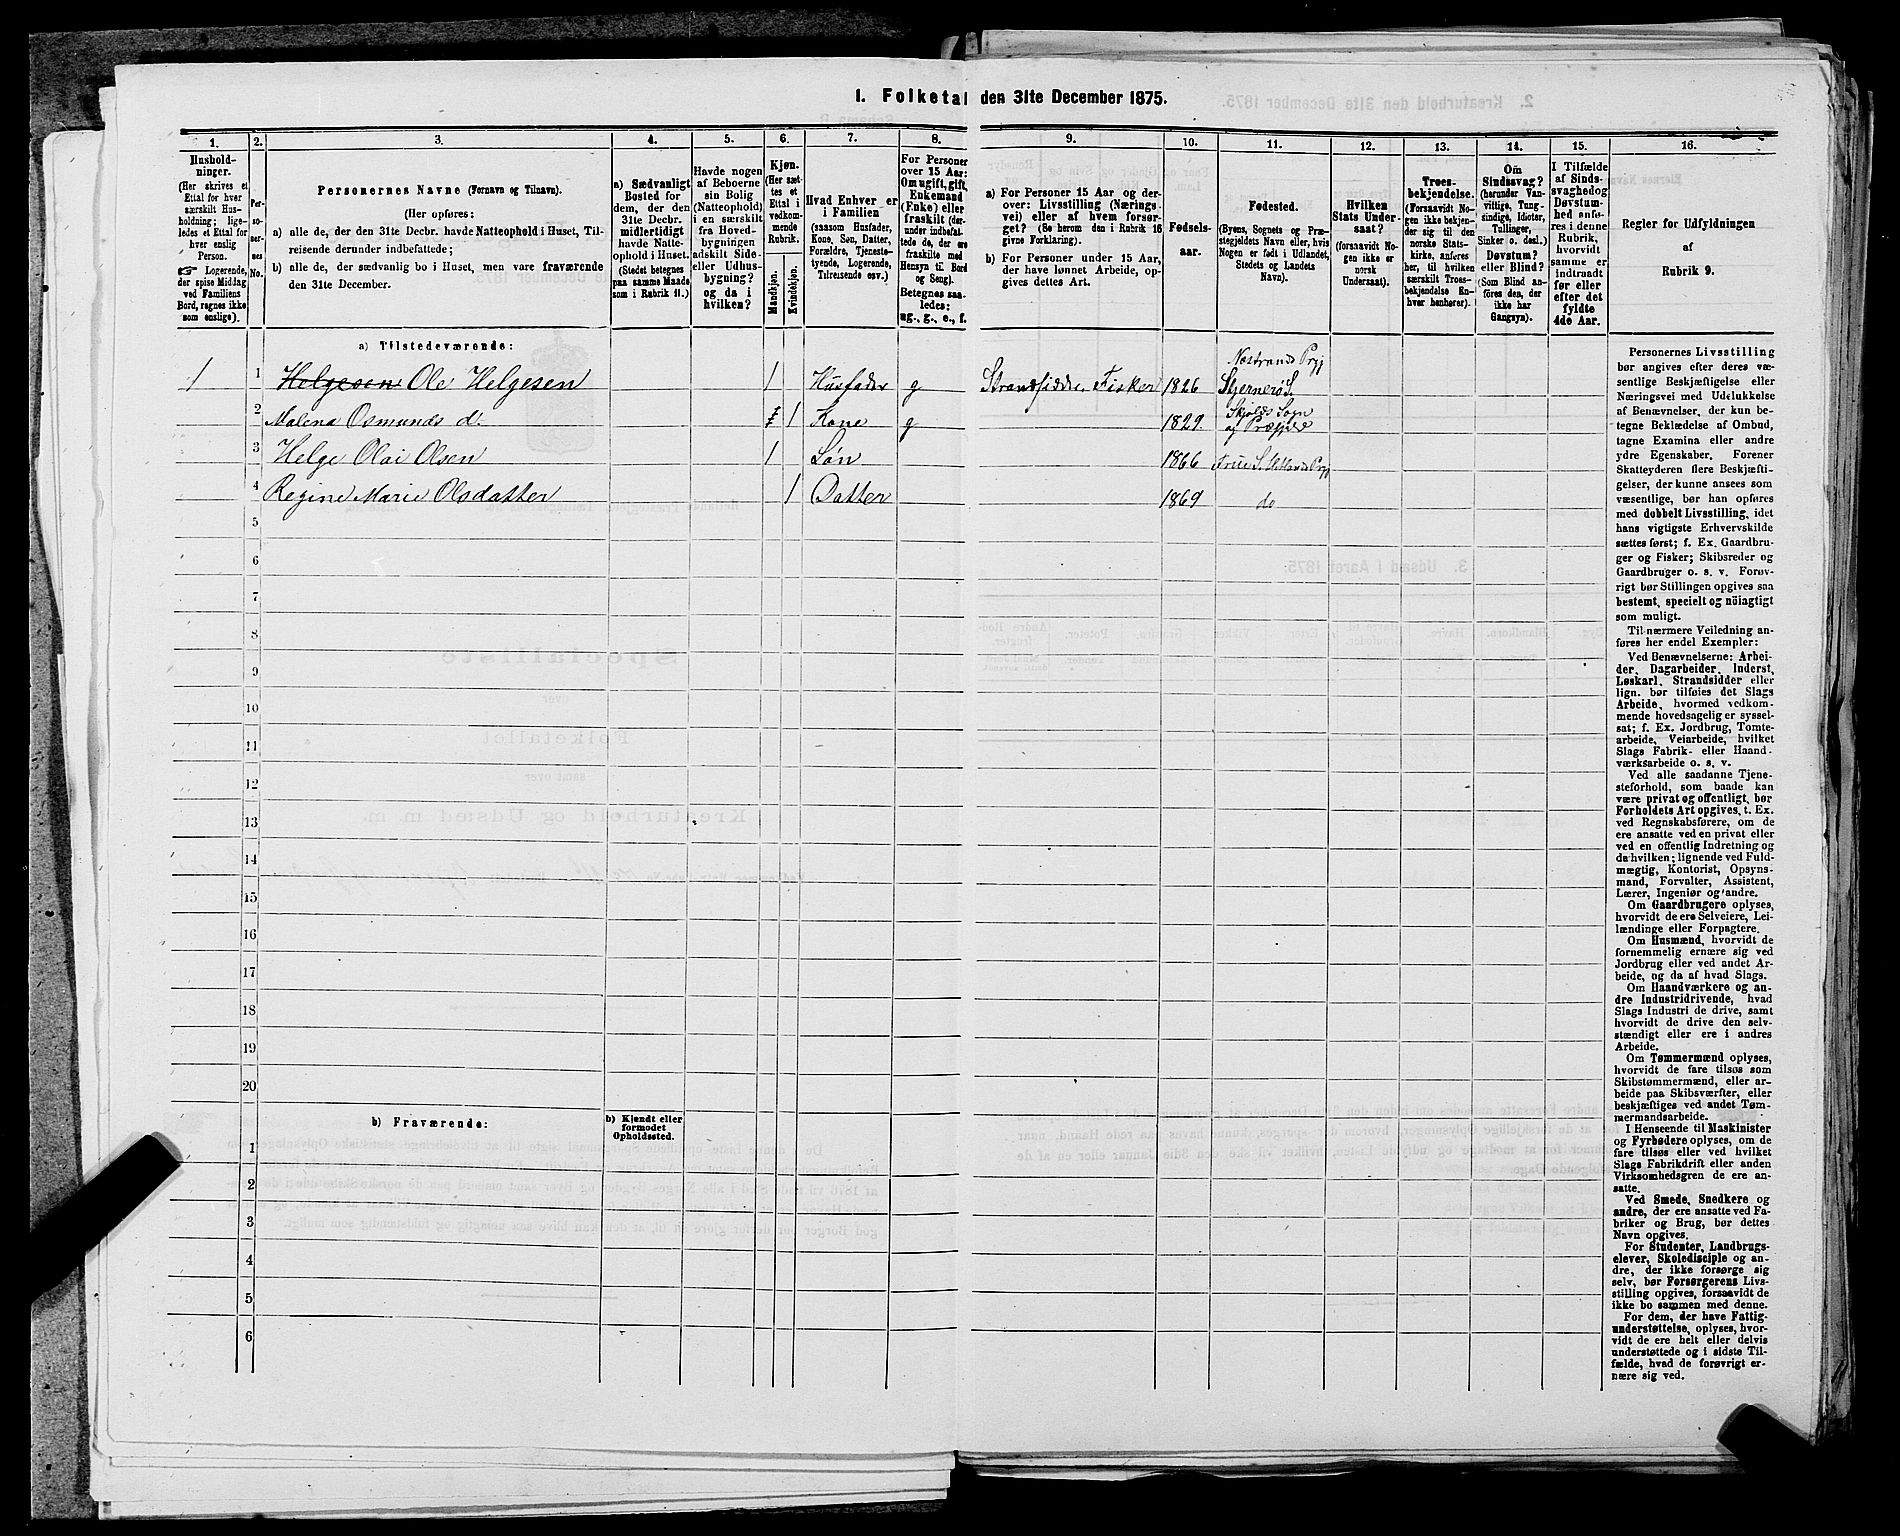 1. Folketal den 31te December 1875.
1. 2. 3. 4. 5. 6. 7. 8. 9. 10. 11. 12. 13. 14. 15. 16.
Hushold-
ninger.
(Her skrives et
Ettal for hver
særskilt Hus-
holdning; lige-
ledes et Ettal for
hver enslig
Person.
☞ Logerende,
der spise Middag
ved Familiens
Bord, regnes ikke
som enslige).
Per-
so-
ner-
nes
No.
Personernes Navne (Fornavn og Tilnavn).
(Her opføres:
a) alle de, der den 31te Decbr. havde Natteophold i Huset, Til-
reisende derunder indbefattede;
b) alle de, der sædvanlig bo i Huset, men vare fraværende
den 31te December.
a) Sædvanligt
Bosted for
dem, der den
31te Decbr.
midlertidigt
havde Natte-
ophold i Huset.
(Stedet betegnes
paa samme Maade
som i Rubrik 11.)
Havde nogen
af Beboerne
sin Bolig
(Natteophold)
i en særskilt
fra Hoved-
bygningen
adskilt Side-
eller Udhus-
bygning?
og da i
hvilken?
Kjøn.
(Her sæt-
tes et
Ettal i
vedkom-
mende
Rubrik.
Mandkjøn.
Kvindekjøn.
Hvad Enhver er
i Familien
(saasom Husfader,
Kone, Søn, Datter,
Forældre, Tjeneste-
tyende, Logerende,
Tilreisende osv.)
For Personer
over 15 Aar:
Om ugift, gift,
Enkemand
(Enke) eller
fraskilt (der-
under indbefat-
tede de, der ere
fraskilte med
Hensyn til Bord
og Seng).
Betegnes saa-
ledes:
ug., g., e., f.
a) For Personer 15 Aar og der-
over: Livsstilling (Nærings-
vei) eller af hvem forsør-
get? (Se herom den i Rubrik 16
givne Forklaring).
b) For Personer under 15 Aar,
der have lønnet Arbeide, op-
gives dettes Art.
Fødsels-
aar.
Fødested.
(Byens, Sognets og Præ-
stegjeldets Navn eller, hvis
Nogen er født i Udlandet,
Stedets og Landets
Navn).
Hvilken
Stats Under-
saat?
(forsaavidt No-
gen ikke er
norsk
Undersaat).
Troes-
bekjendelse.
(Forsaavidt No-
gen ikke bekjen-
der sig til den
norske Stats-
kirke, anføres
her, til hvilken
særskilt Troes-
bekjendelse En-
hver henhører).
Om
Sindssvag?
(herunder Van-
vittige, Tung-
sindige, Idioter,
Tullinger,
Sinker o. desl.)
Døvstum?
eller Blind?
(Som Blind an-
føres den, der
ikke har
Gangsyn).
I Tilfælde
af Sinds-
svaghed og
Døvstum-
hed anfø-
res i denne
Rubrik,
hvorvidt
samme er
indtraadt
før eller
efter det
fyldte
4de Aar.
Regler for Udfyldningen
af
Rubrik 9.
a) Tilstedeværende:
1 1 Helgesen Ole Helgesen 1 Husfader g Strandsidder, Fisker 1826 Næstrands Prgj Skjernerö S.
2 Malena Osmunds d. 1 Kone g 1829. Skjolds Sogn og Præstgj
3 Helge Olai Olsen 1 Søn 1866
4 Regine Marie Olsdatter 1 Datter 1869 do
5
6
7
8
9
10
11
12
13
14
15
16
17
18
19
20
b) Fraværende:
b) Kjendt eller
formodet
Opholdssted.
1
2
3
4
5
6
Personernes Livsstilling
bør angives efter deres væ-
sentlige Beskjæftigelse eller
Næringsvei med Udelukkelse
af Benævnelser, der kun be-
tegne Beklædelse af Ombud,
tagne Examina eller andre
ydre Egenskaber. Forener
Skatteyderen flere Beskjæfti-
gelser, der kunne ansees som
væsentlige, bør han opføres
med dobbelt Livsstilling, idet
hans vigtigste Erhvervskilde
sættes først; f. Ex. Gaardbru-
ger og Fisker; Skibsreder og
Gaardbruger o. s. v. Forøv-
rigt bør Stillingen opgives saa
bestemt, specielt og nöiagtigt
som muligt.
Til nærmere Veiledning an-
føres her endel Exempler:
Ved Benævnelserne: Arbei-
der, Dagarbeider, Inderst,
Løskarl, Strandsidder eller
lign. bør tilføies det Slags
Arbeide, hvormed vedkom-
mende hovedsagelig er syssel-
sat; f. Ex. Jordbrug, Tomte-
arbeide, Veiarbeide, hvilket
Slags Fabrik- eller Haand-
værksarbeide o. s. v.
Ved alle saadanne Tjene-
steforhold, som baade kan
være privat og offentligt, bør
Forholdets Art opgives, t. Ex.
ved Regnskabsførere, om de
ere ansatte ved en privat eller
ved en offentlig Indretning og
da hvilken; lignende ved Fuld-
mægtig, Kontorist, Opsyns-
mand, Forvalter, Assistent,
Lærer, Ingeniør og andre.
Om Gaardbrugere oplyses,
hvorvidt de ere Selveiere, Lei-
lændinge eller Forpagtere.
Om Husmænd, hvorvidt de
fornemmelig ernære sig ved
Jordbrug eller ved andet Ar-
beide, og da af hvad Slags.
Om Haandværkere og an-
dre Industridrivende, hvad
Slags Industri de drive, samt
hvorvidt de drive den selv-
stændigt eller ere i andres
Arbeide.
Om Tømmermænd oplyses,
hvorvidt de fare tilsøs som
Skibstømmermænd, eller ar-
beide paa Skibsværfter, eller
beskjæftiges ved andet Tøm-
mermandsarbeide.
I Henseende til Maskinister
og Fyrbødere oplyses, om de
fare tilsøs eller ved hvilket
Slags Fabrikdrift eller anden
Virksomhedsgren de ere an-
satte.
Ved Smede, Snedkere og
andre, der ere ansatte ved Fa-
briker og Brug, bør dettes
Navn opgives.
For Studenter, Landbrugs-
elever, Skoledisciple og an-
dre, der ikke forsørge sig
selv, bør Forsørgerens Livs-
stilling opgives, forsaavidt de
ikke bo sammen med denne.
For dem, der have Fattig-
understøttelse, oplyses, hvor-
vidt de ere helt eller delvis
understøttede og i sidste Til-
fælde, hvad de forøvrigt er-
nære sig ved.